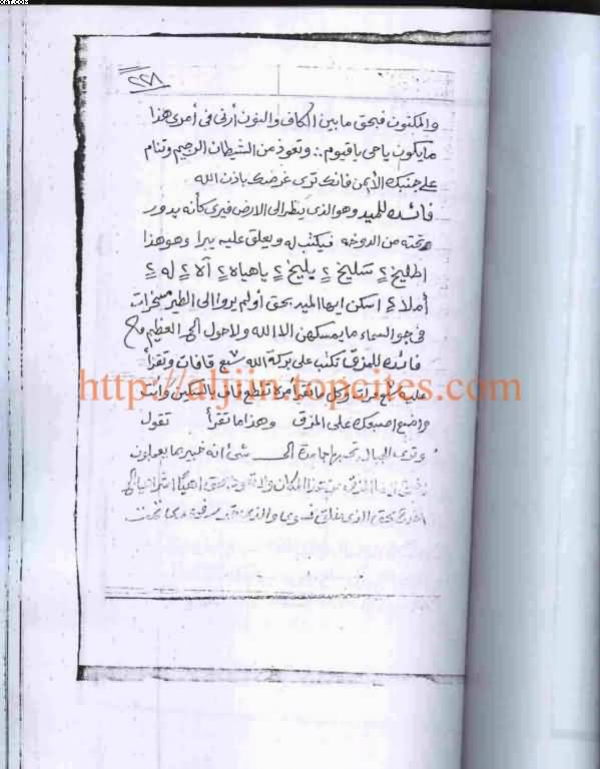 ٢٢٨
والمكنون فبحق ما بين الكاف والنون أرنى فى أمرى هذا
ما يكون ياحى ياقيوم وتعوذ من الشيطان الرجيم وتنام
على جنبك الأيمن فانك ترى غرضك باذن الله
فائده للميد وهو الذى ينظر الى الارض فيرى كأنه يدور
تحته من الدوخه فيكتب له ويعلق عليه يبرا وهو هذا
اطليخ ٢ شليخ ٢ يليخ ٢ ياهياه ٢ آلا ٢ له ٢
أملا ٤ اسكن ايها الميد بحق أولم يروا الى الطير مسخرات
فى جو السماء ما يمسكهن الا الله ولا حول الى العظيم
فائده للمزق تكتب على بركة الله سبع قافات وتقرأ
عليه سبع مرات وكل ما تقرأ مرة تقطع قاف بالسكين وانت
واضع اصبعك على المزق وهذا ما تقرأ تقول
وترى الجبال تحسبها جامدة الى شئ انه خبير بما تفعلون
المزق من هذا المكان بحق اهيا شراهيا
بحق الذى خلق فسوى والذى قدر فهدى
http://aljiin.topcites.com